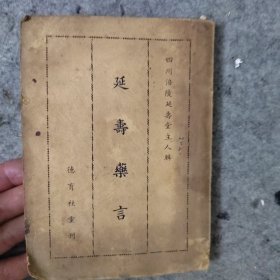 四川涪陵延壽堂主人輯
延壽藥言
德育社重刊